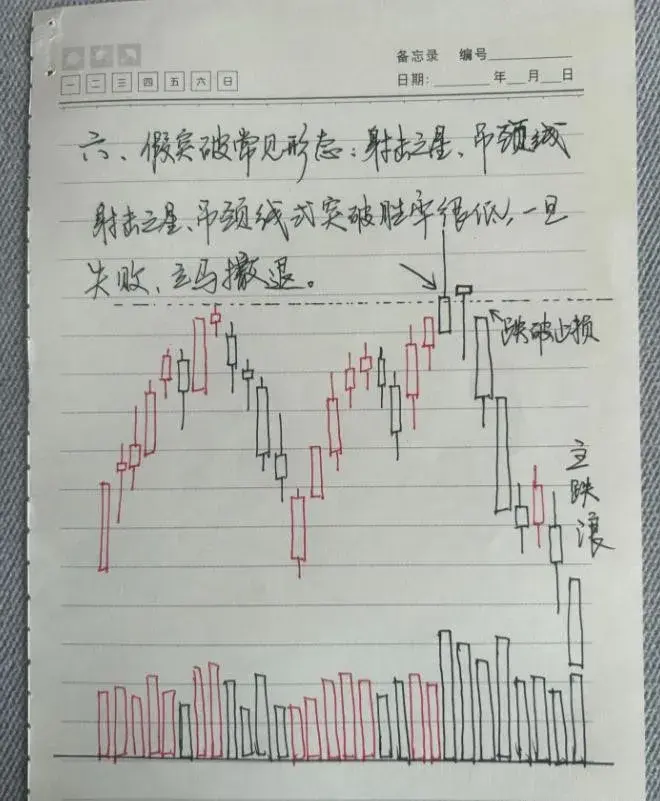 备忘录 编号________
日期:________年___月___日
一 二 三 四 五 六 日
六、假突破常见形态:射击之星、吊颈线
射击之星、吊颈线式突破胜率很低,一旦
失败,立马撤退。
跌破止损
主跌浪